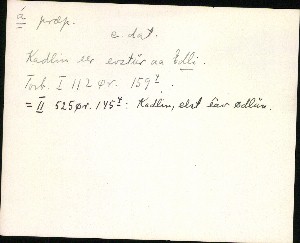 á præp.
c. dat.
Kadlin er evstür aa Edli.
Torb. I 112 ør. 159⁴.
= II 525 ør. 145⁴: Kadlin, elst eav Ødlün.